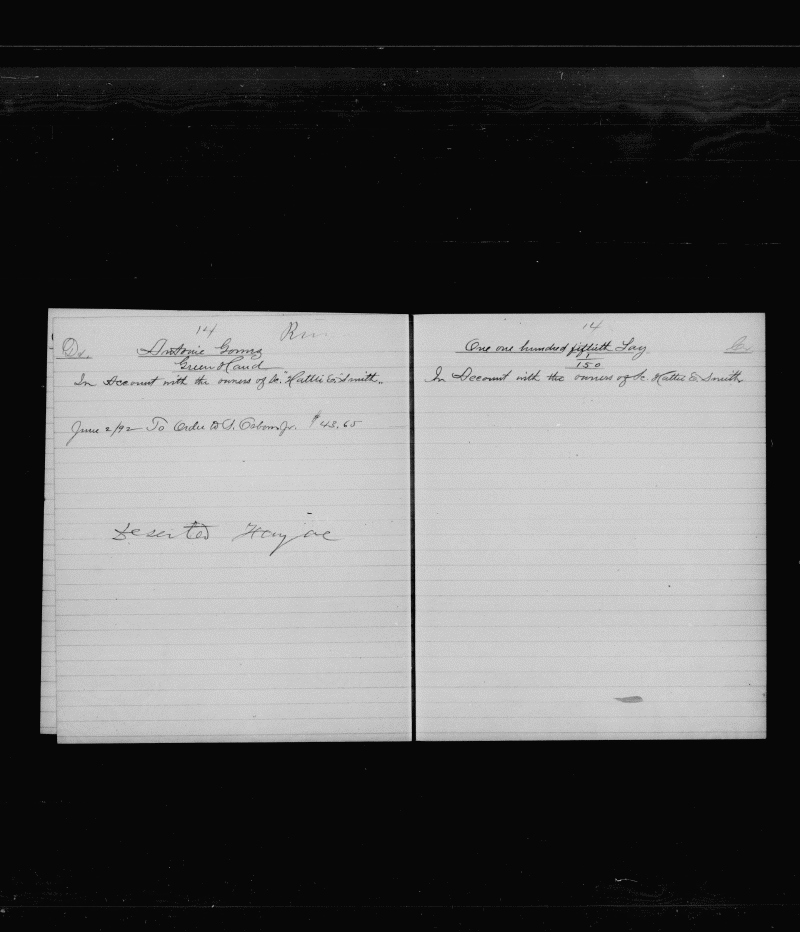 14 Run
Dr. Antonie Gomez
Green Hand
In Account with the owners of Sc. "Hattie E. Smith"
June 2/92 To Order to S. Osborn Jr. $43.65
Deserted
14
One one hundred fiftieth Lay. Cr.
1
150
In Account with the owners of Sc. Hattie E. Smith